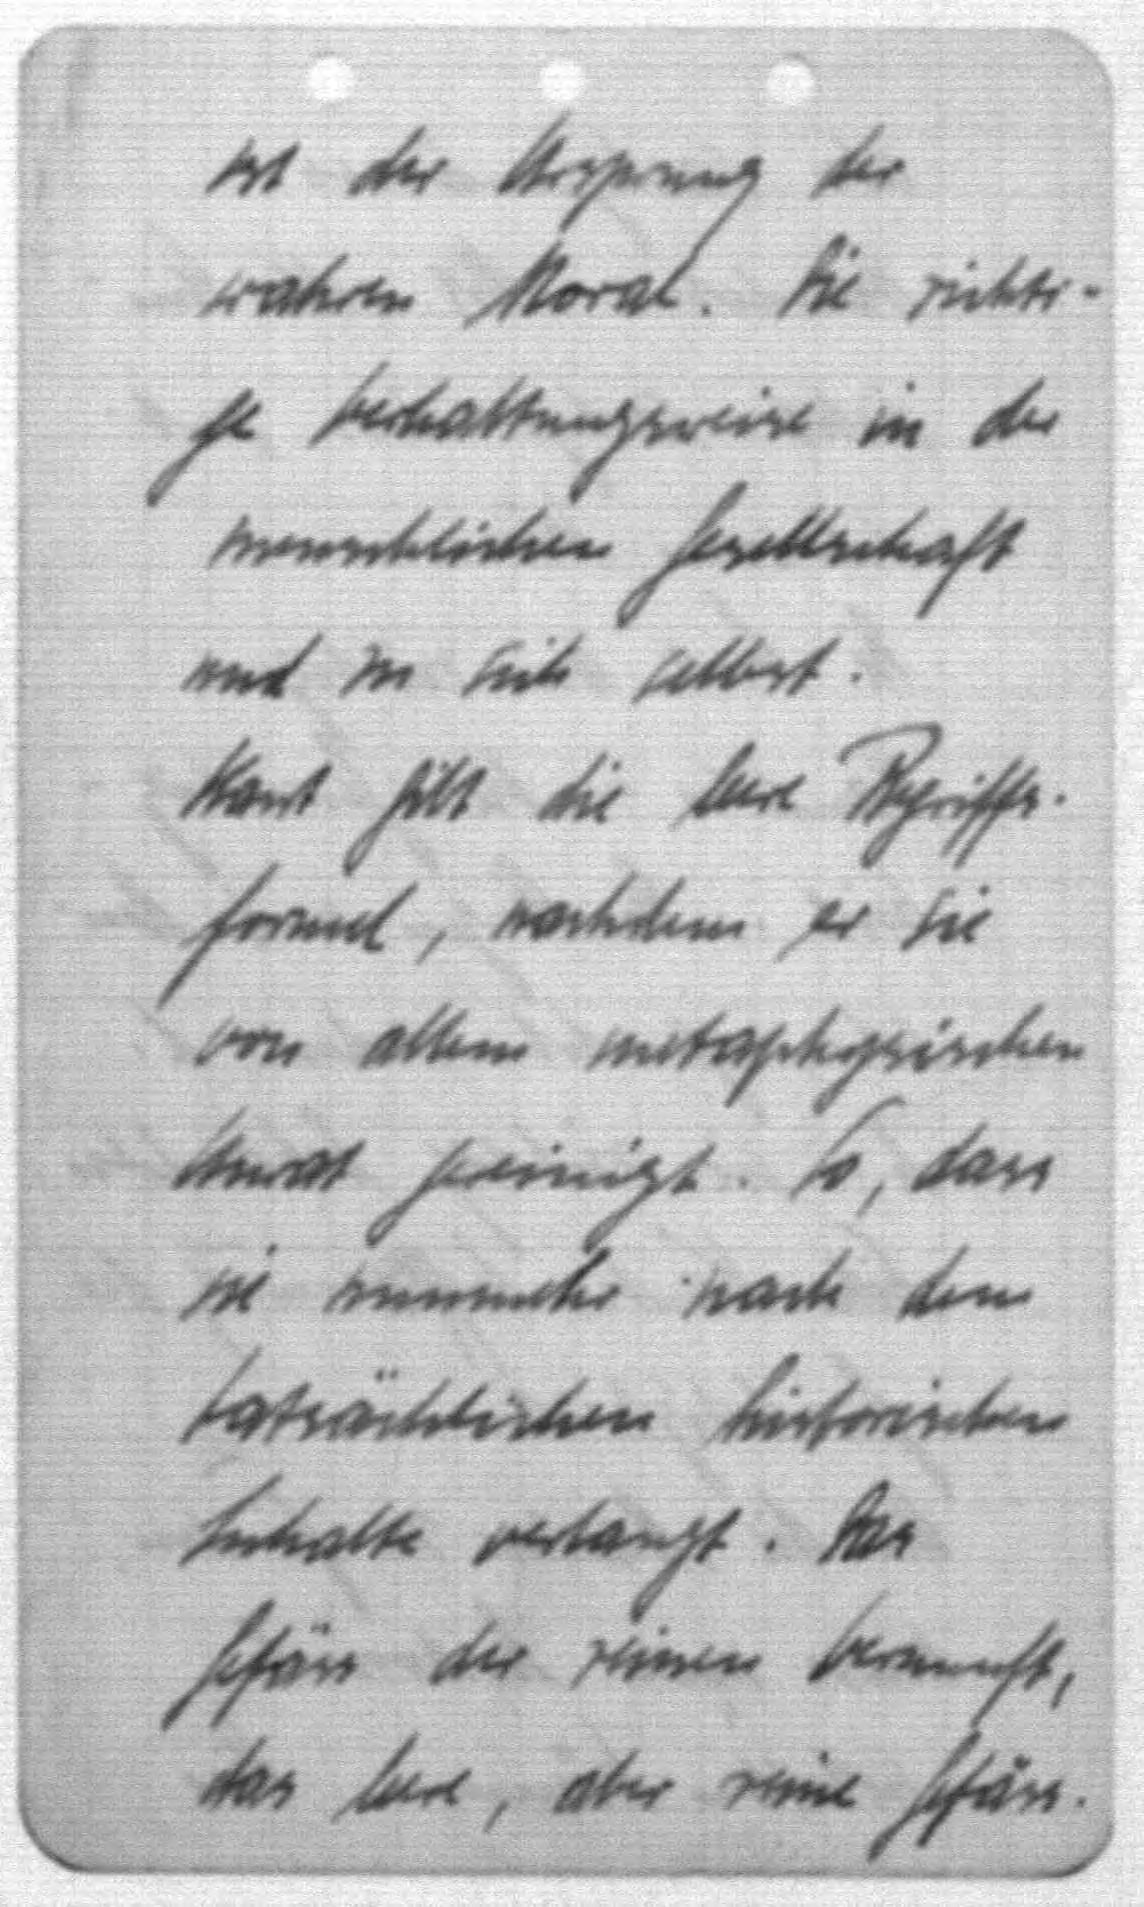 ist der Ursprung der
wahren Moral. Die richti-
ge Verhaltungsweise in der
menschlichen Gesellschaft
und zu sich selbst.
Kant gibt die leere Begriffs-
formel, nachdem er sie
von allem metaphysischen
Unrat gereinigt. So, dass
sie nunmehr nach dem
tatsächlichen historischen
Inhalte verlangt. Das
Gefäss der reinen Vernunft,
das leere, aber reine Gefäss.